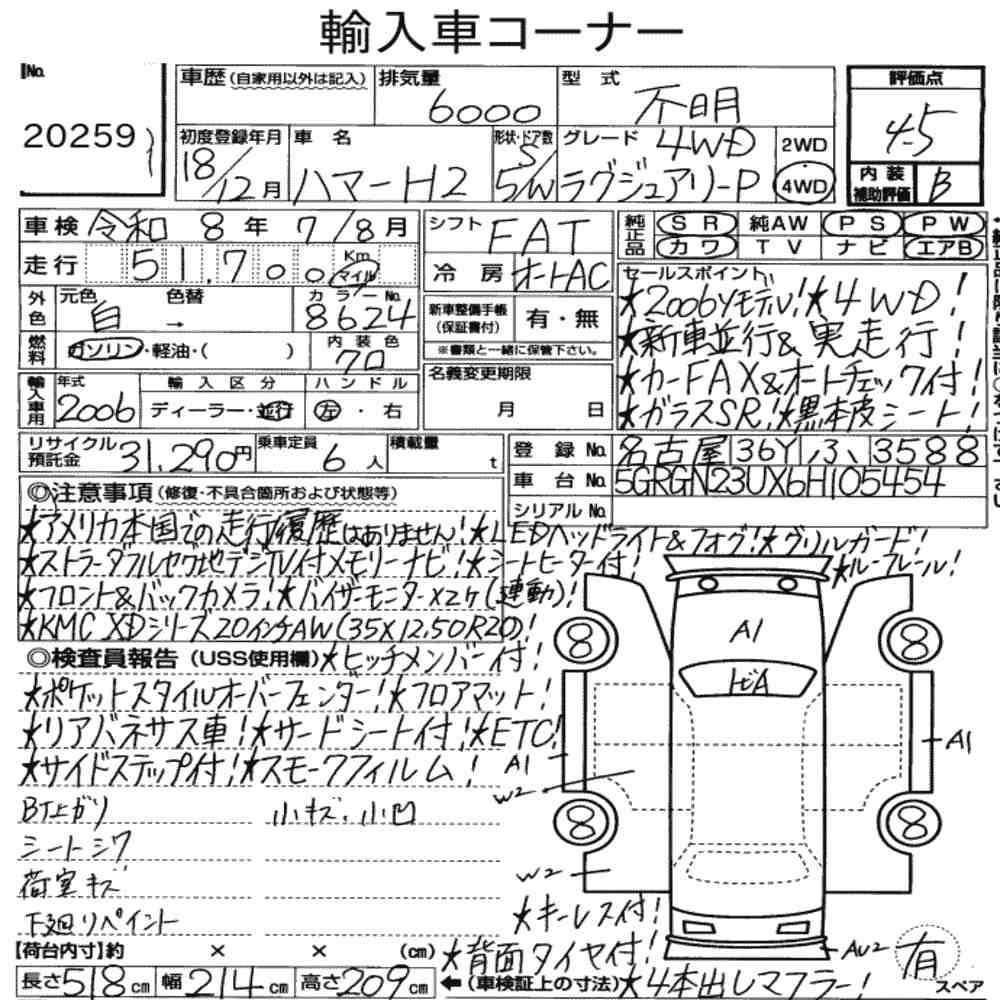 輸入車コーナー
No.
20259
車歴 (自家用以外は記入)
排気量
6000
型式
不明
評価点
4.5
初度登録年月
18/12月
車名
ハマーH2
形状・ドア数
5/5W
グレード
4WD
ラグジュアリーP
2WD
4WD
内装補助評価
B
車検 令和 8年 7/8月
シフト FAT
純正品
SR 純AW PS PW
カワ TV ナビ エアB
走行 51,700 Km マイル
冷房 オートAC
外色
元色 白
色替 →
カラーNo. 8624
新車整備手帳(保証書付)
有・無
※書類と一緒に保管下さい。
燃料
ガソリン・軽油・( )
内装色
クロ
セールスポイント
★2006Yモデル!★4WD!
★新車並行&実走行!
★カーFAX&オートチェック付!
★ガラスSR!★黒本皮シート!
輸入車用
年式 2006
輸入区分
ディーラー・並行
ハンドル
左・右
名義変更期限
月 日
リサイクル預託金 31,290円
乗車定員 6人
積載量 t
登録No. 名古屋 36Y ふ 3588
車台No. 5GRGN23UX6H105454
シリアルNo.
◎注意事項 (修復・不具合箇所および状態等)
★アメリカ本国での走行履歴はありません!★LEDヘッドライト&フォグ!★グリルガード!
★ストラーダフルセグ地デジTV付メモリーナビ!★シートヒーター付!
★ルーフレール!
★フロント&バックカメラ!★バイザーモニター×2ケ(連動)!
★KMC XDシリーズ20インチAW(35×12.50R20)!
◎検査員報告 (USS使用欄)★ヒッチメンバー付!
★ポケットスタイルオーバーフェンダー!★フロアマット!
★リアバネサス車!★サードシート付!★ETC!
★サイドステップ付!★スモークフィルム!
BT上ガリ
小キズ、小凹
シートシワ
荷室キズ
下廻リペイント
A1
トビA
8
8
8
8
A1
A1
W2
W2
AU2
★キーレス付!
★背面タイヤ付!
★4本出しマフラー!
有
スペア
【荷台内寸】約 × × (cm)
長さ518cm 幅214cm 高さ209cm
←(車検証上の寸法)